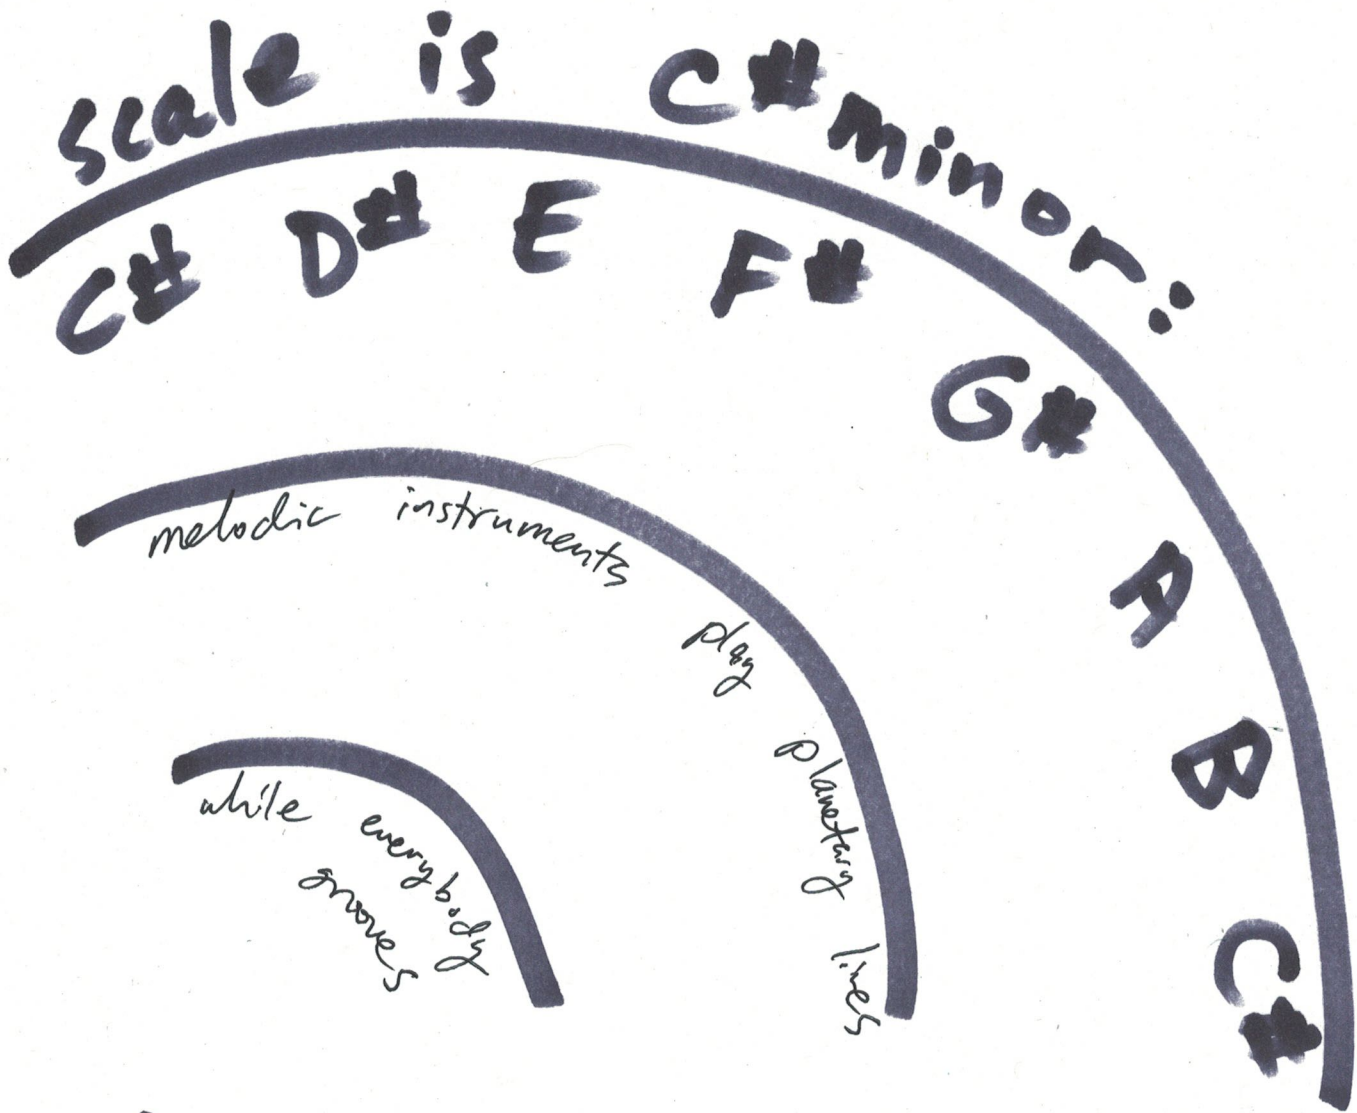 scale is C# minor:
C# D# E F# G# A B C#
melodic instruments play planetary lines
while everybody
grooves